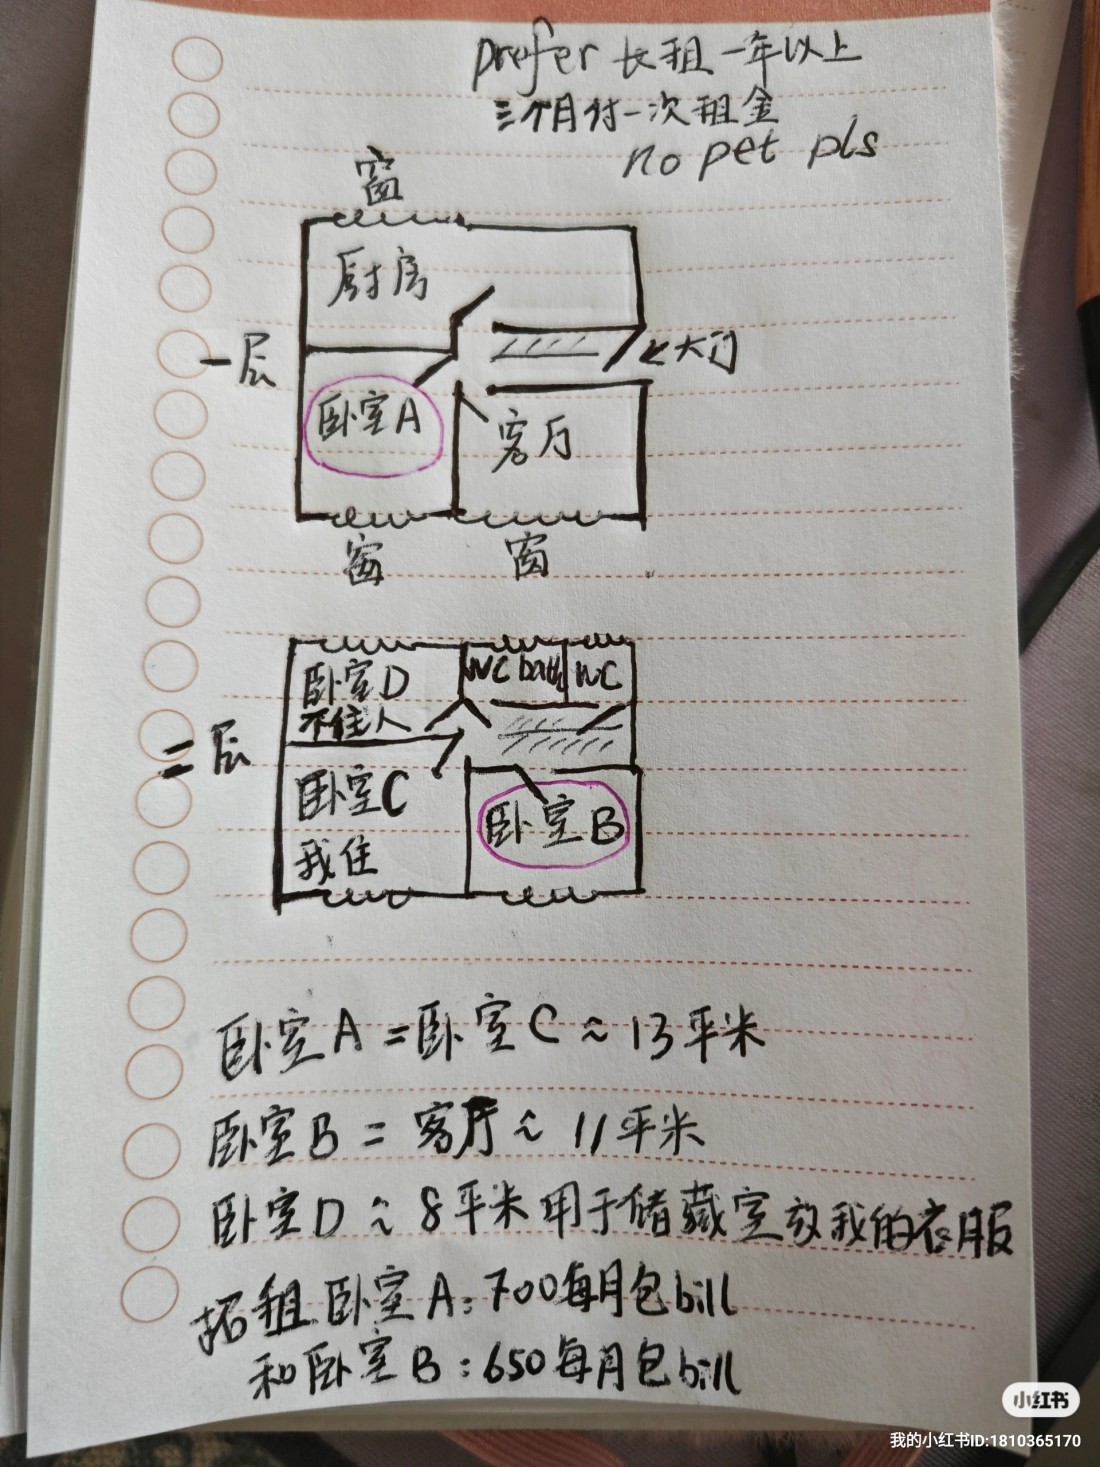 prefer 长租一年以上
三个月付一次租金
no pet pls
窗
厨房
一层
大门
卧室A
客厅
窗
窗
卧室D
不住人
WC bath
WC
二层
卧室C
我住
卧室B
卧室A=卧室C≈13平米
卧室B=客厅≈11平米
卧室D≈8平米用于储藏室放我的衣服
招租卧室A:700每月包bill
和卧室B:650每月包bill
小红书
我的小红书ID:1810365170